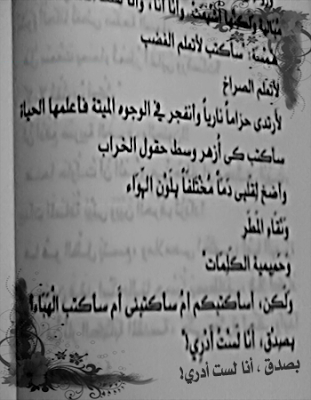 وأنا أنا، وأنا
همسة: سأكتب لأتعلم الغضب
لأتعلم الصراخ
لأرتدى حزاماً نارياً وأنفجر في الوجوه الميتة فأعلمها الحياة
سأكتب كى أزهر وسط حقول الخراب
وأضخ لقلبى دماً مُخْتَلفاً بلَوْن الهَوَاء
ونَقَاء المَطَر
وحَميمية الكَلِمَات"
ولَكن، أسأكتبكم امْ سأكتبنى أم سأكتب الهَبَاء؟
بصدْق، أنا لَسْتُ أدْري؟
بصدق ، أنا لست أدري!